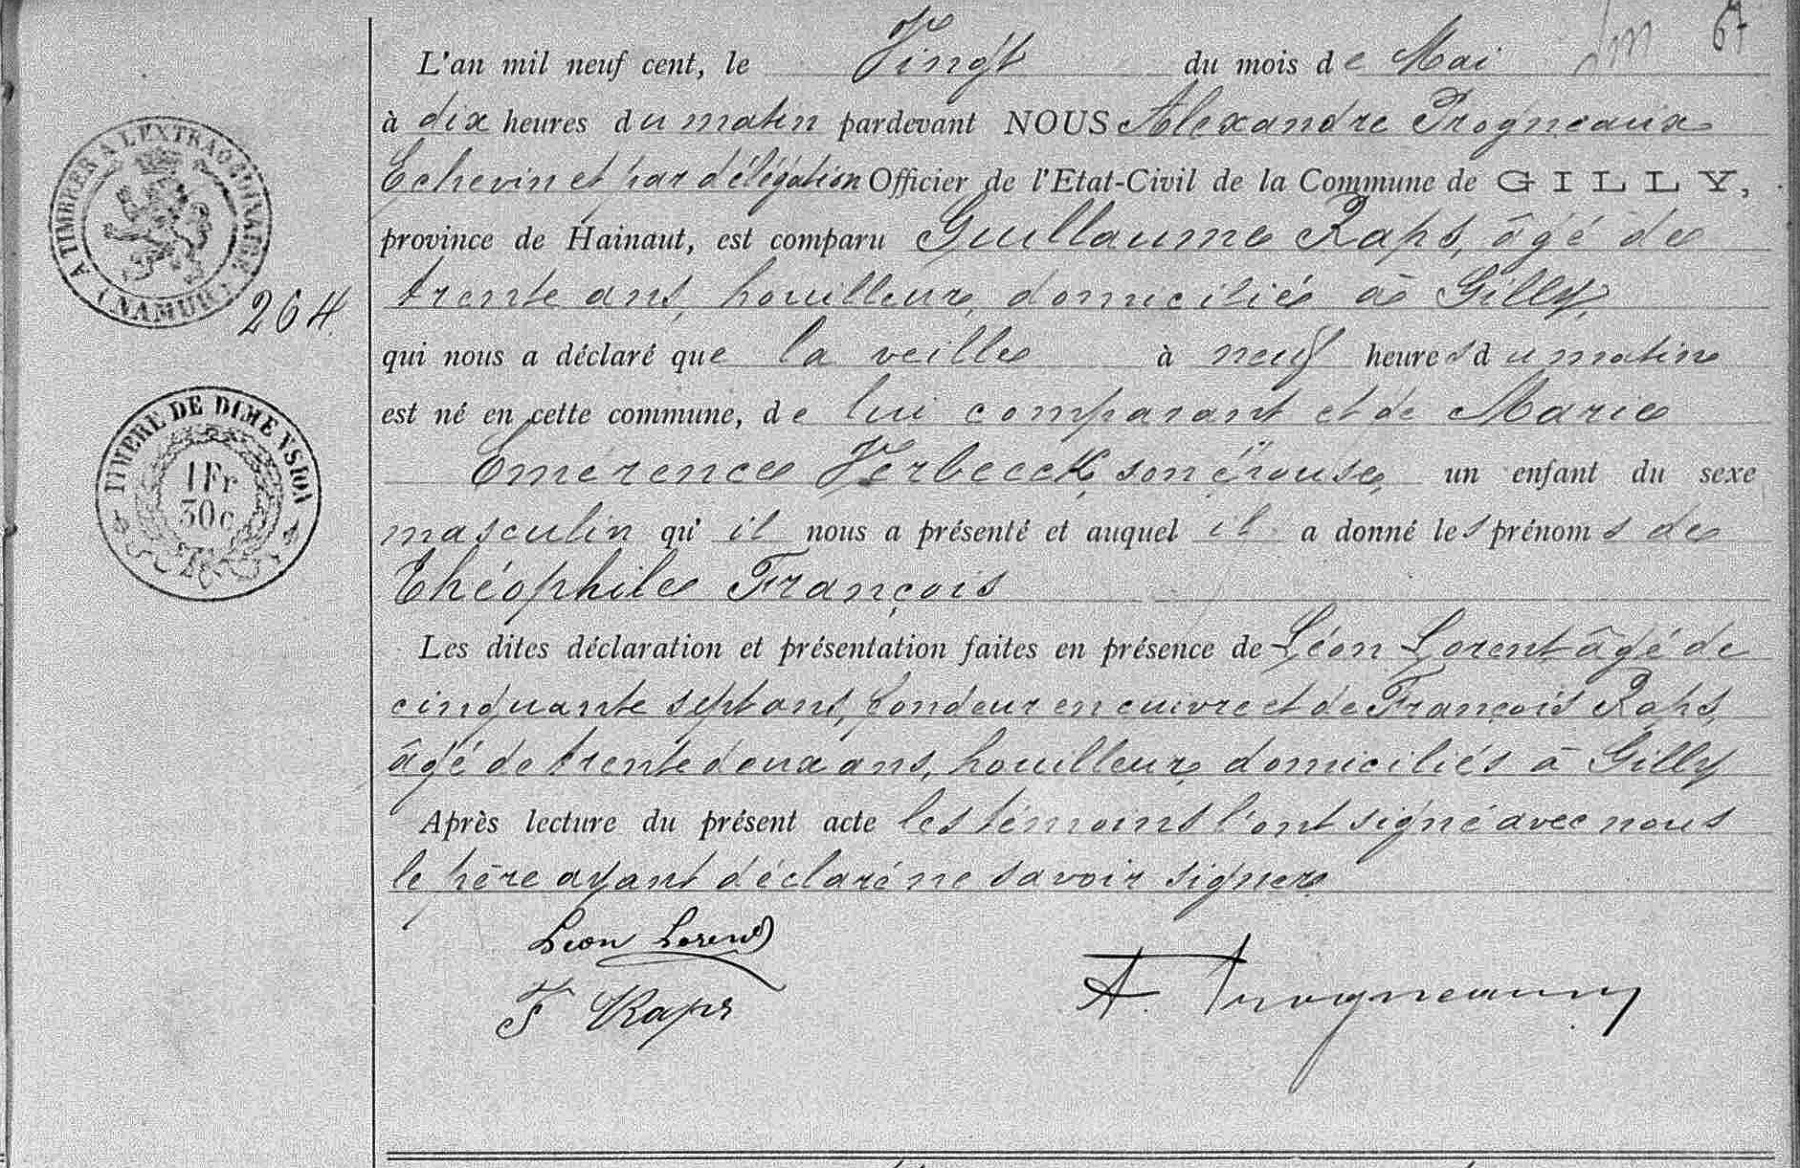 67
L'an mil neuf cent, le Vingt du mois de Mai
à dix heures du matin pardevant NOUS Alexandre Trogneaux
Echevin et par délégation Officier de l'Etat-Civil de la Commune de GILLY,
province de Hainaut, est comparu Guillaume Raps, âgé de
trente ans, houilleur, domicilié à Gilly,
qui nous a déclaré que la veille à neuf heures du matin
est né en cette commune, de lui comparant et de Marie
Emérence Verbeeck, son épouse, un enfant du sexe
masculin qu'il nous a présenté et auquel il a donné les prénoms de
Théophile François
Les dites déclaration et présentation faites en présence de Léon Lorent âgé de
cinquante sept ans, fondeur en cuivre et de François Raps,
âgé de trente deux ans, houilleur, domiciliés à Gilly
Après lecture du présent acte les témoins l'ont signé avec nous
le père ayant déclaré ne savoir signer
Léon Lorent
F Raps
A. Trogneaux
A TIMBRER A L'EXTRAORDINAIRE
(NAMUR)
264.
TIMBRE DE DIMENSION
1 Fr
30c